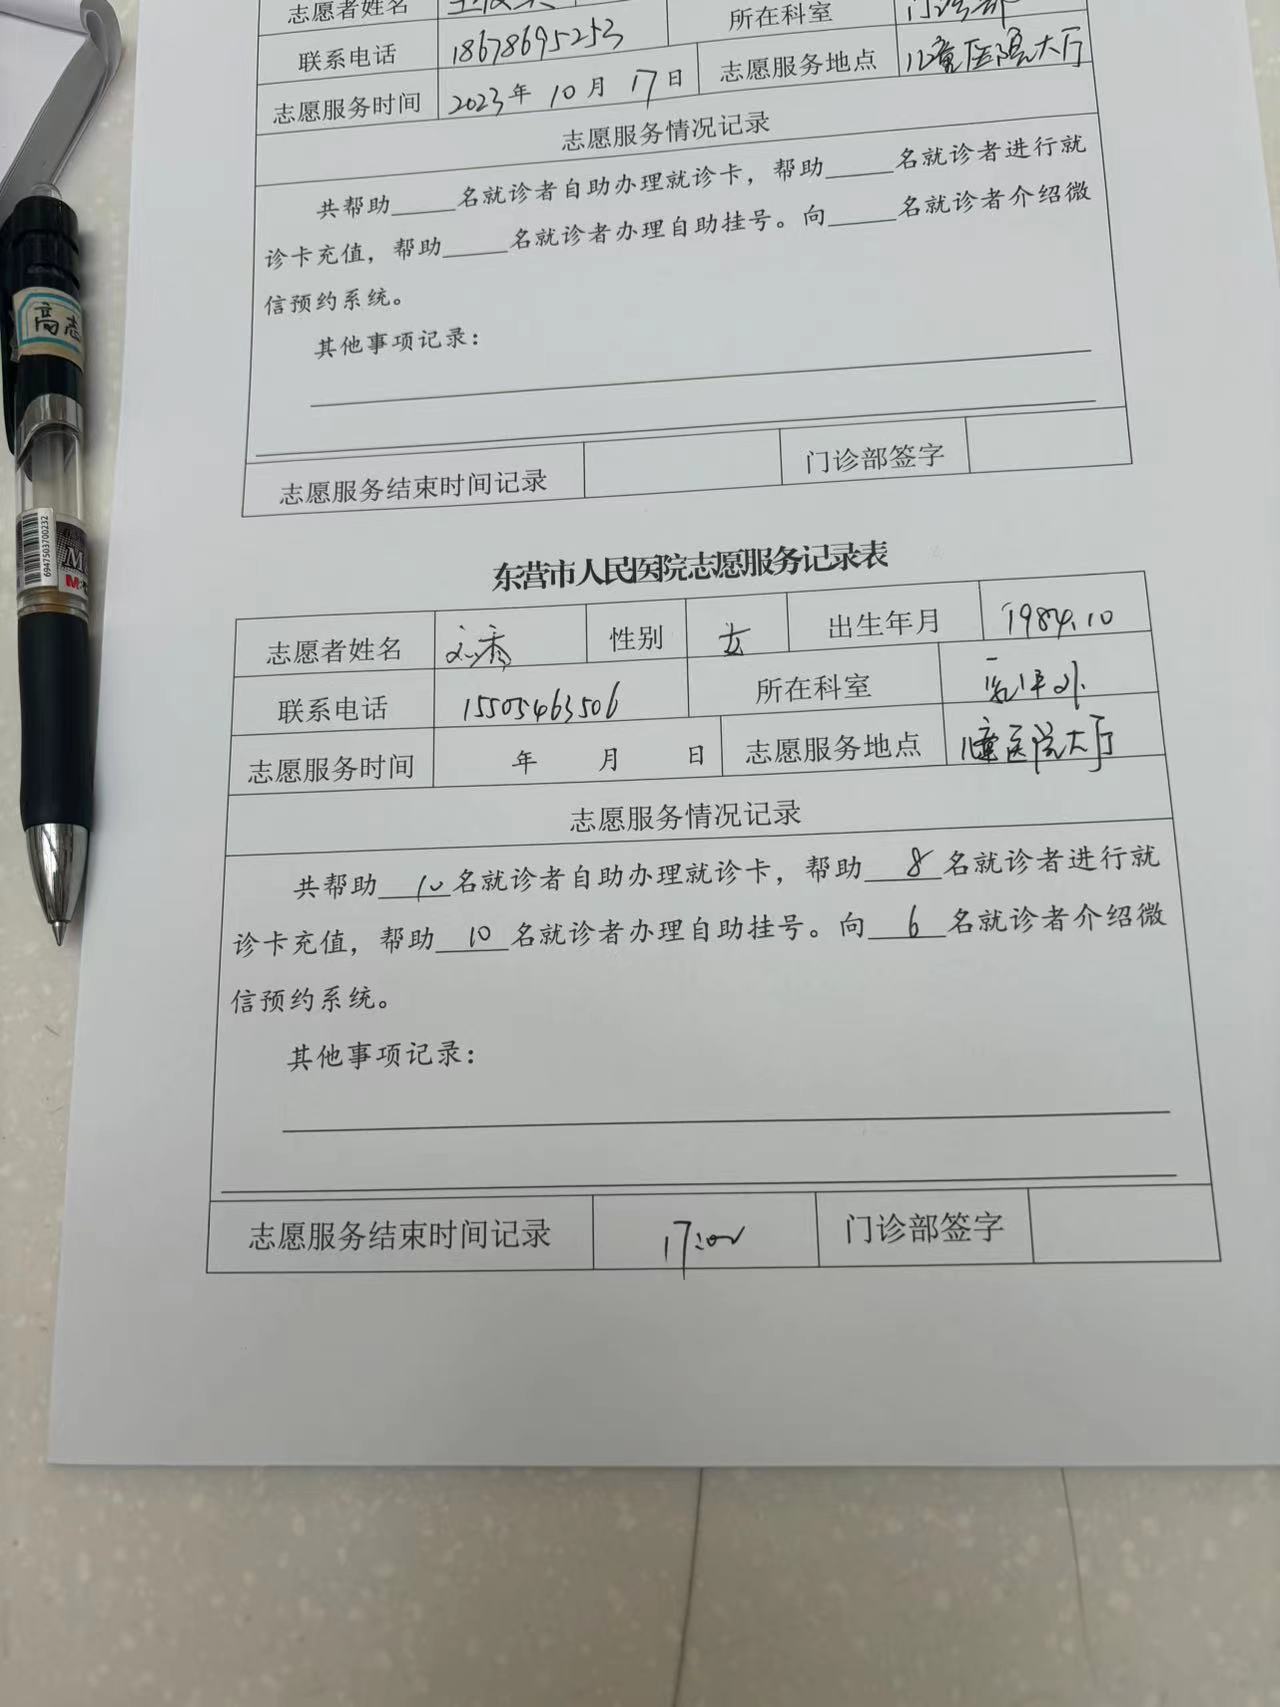 志愿者姓名 所在科室 门诊部
联系电话 18678695253
志愿服务时间 2023年 10月 17日 志愿服务地点 儿童医院大厅
志愿服务情况记录
共帮助_____名就诊者自助办理就诊卡，帮助_____名就诊者进行就
诊卡充值，帮助_____名就诊者办理自助挂号。向_____名就诊者介绍微
信预约系统。
其他事项记录：
志愿服务结束时间记录 门诊部签字
东营市人民医院志愿服务记录表
志愿者姓名 刘秀 性别 女 出生年月 1984.10
联系电话 15505463506 所在科室
志愿服务时间 年 月 日 志愿服务地点 儿童医院大厅
志愿服务情况记录
共帮助 10 名就诊者自助办理就诊卡，帮助 8 名就诊者进行就
诊卡充值，帮助 10 名就诊者办理自助挂号。向 6 名就诊者介绍微
信预约系统。
其他事项记录：
志愿服务结束时间记录 17:00 门诊部签字
高志
6947503700232